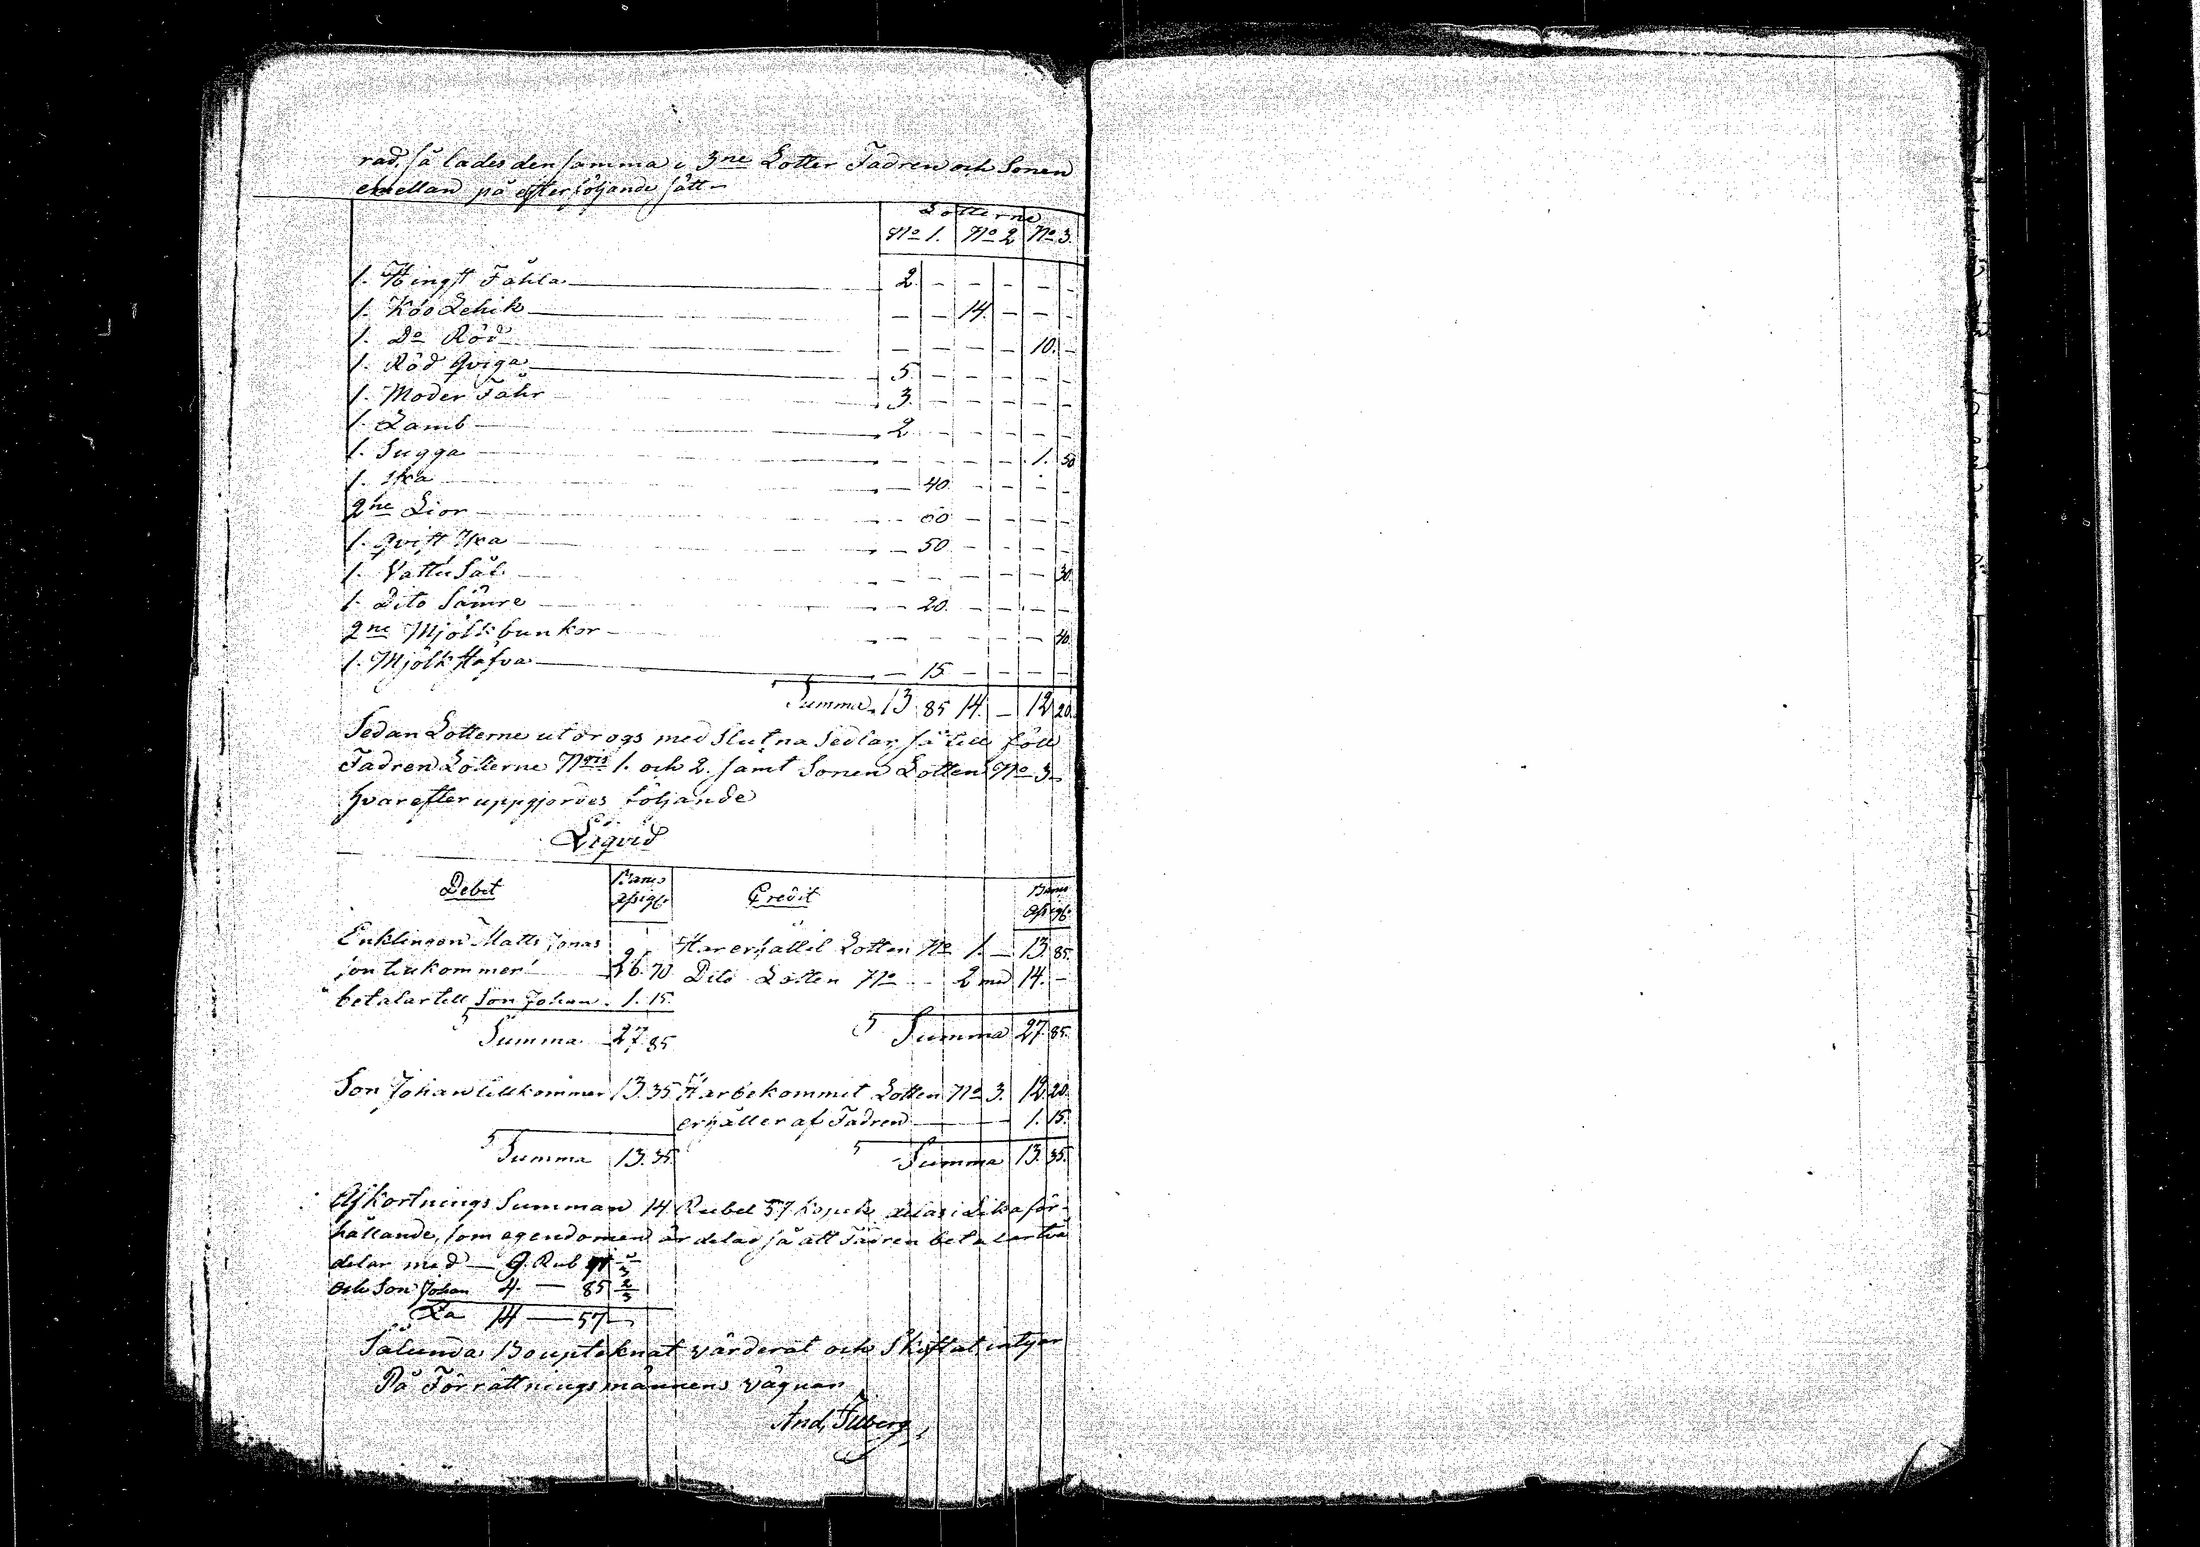 rad, så lades densamma i 3ne Lotter Fadren och Sonen
emellan på efterföljande sätt —
Lotterne
No 1. No 2 No 3.
1. Hingst Fåhla 2. — — — — —
1. Koo — — 14. — — —
1. Do Röd — — — — 10. —
1. Röd Qviga 5. — — — — —
1. Moder Fåhr 3. — — — — —
1. Lamb 2 — — — — —
1. Sugga — — — — 1. 50
1. Yxa — 40. — — — —
2ne Lior — 60 — — — —
1. Qvist Yxa — 50. — — — —
1. Vattu Så — — — — — 30.
1. Dito Sämre — 20. — — — —
2ne Mjölkbunkor — — — — — 40.
1. Mjölk Håfva — 15. — — — —
Summa 13 85 14. — 12 20.
Sedan Lotterne utdrogs med Slutna Sedlar, så till föll
Fadren Lotterne Nris 1. och 2. samt Sonen Lotten No 3.
hvarefter uppgjordes följande
Liqvid
Debit Banco Assig. Credit Banco Assig.
Enklingen Matts Jonas Har erhållit Lotten No 1. — 13 85.
son tillkommer 26. 70 Dito Lotten No 2 med 14. —
betalar till Son Johan. 1. 15.
Summa 27. 85 Summa 27. 85.
Son Johan tillkommer 13. 35 Har bekommit Lotten No 3. 12. 20.
erhåller af Fadren 1. 15.
Summa 13. 35. Summa 13. 35.
Afkortnings Summan 14 Rubel 57 Kopek delas i Lika för-
hållande, som egendomen är delad så att Fadren betalar två
delar med — 9. Rub 71
och Son Johan 4. — 85 2/3
14 — 57 —
Sålunda Boupteknat värderat och Skiftat intygar
På Förrättningsmännens vägnar
And, Tilberg